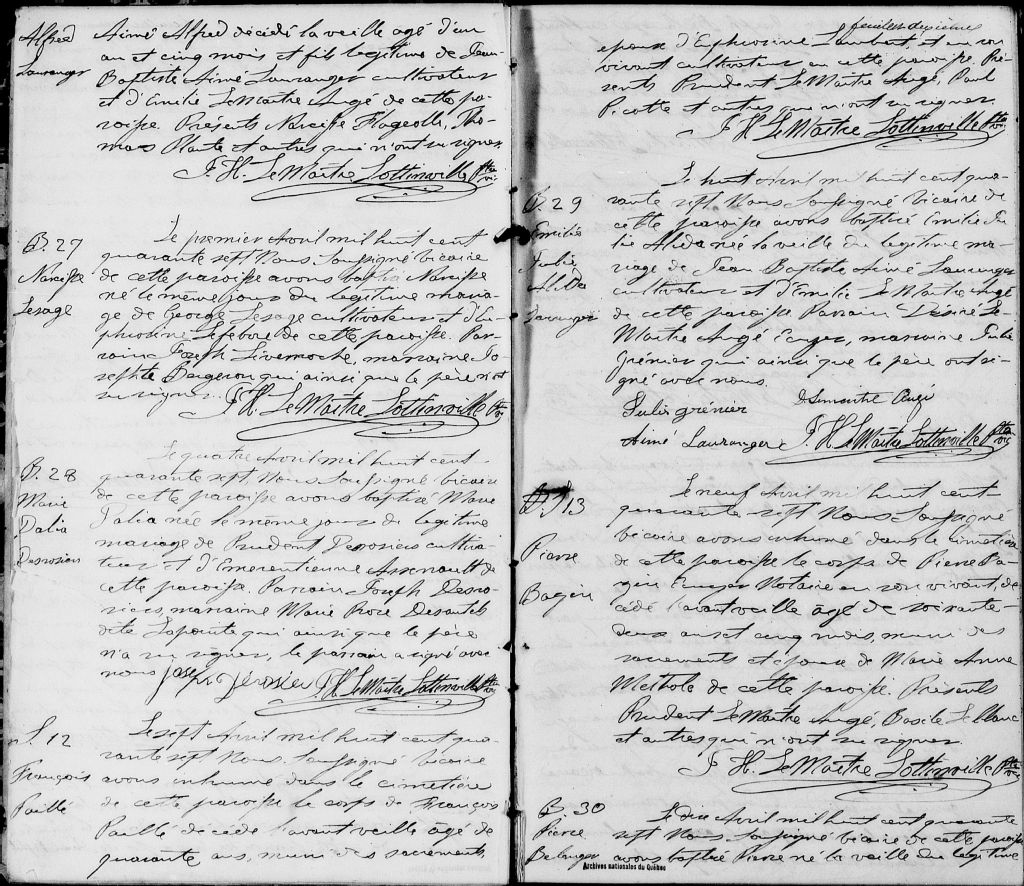 Alfred
Lauranger
Aimé Alfred décédé la veille agé d'un
an et cinq mois et fils legitime de Jean
Baptiste Aimé Lauranger cultivateur
et d'Emilie LeMaitre Augé de cette pa-
roisse. Présents Narcisse Flageolle, Tho-
mas Plante et autres qui n'ont su signer
J. H. LeMaître Lottinville Ptre
vic
B. 27
Narcisse
Lesage
Le premier Avril mil huit cent
quarante sept Nous soussigné vicaire
de cette paroisse avons baptisé Narcisse
né le même jour du legitime maria-
ge de George Lesage cultivateur et d'Eu-
phrosine Lefebvre de cette paroisse. Par-
rain Joseph Livernoche, marraine Jo-
sephte Bergeron qui ainsi que le père n'ont
su signer. J. H. LeMaître Lottinville Ptre
vic
B. 28
Marie
Dalia
Desrosiers
Le quatre Avril mil huit cent
quarante sept Nous soussigné vicaire
de cette paroisse avons baptisé Marie
Dalia née le même jour du legitime
mariage de Prudent Desrosiers cultiva-
teur et d'Emerentienne Arsenault de
cette paroisse. Parrain Joseph Desro-
siers, marraine Marie Rose Desautels
dite Lapointe qui ainsi que le père
n'a su signer, le parrain a signé avec
nous J. H. LeMaître Lottinville Ptre
vic
S. 12
François
Paillé
Le sept Avril mil huit cent qua-
rante sept Nous soussigné vicaire
avons inhumé dans le cimetière
de cette paroisse le corps de François
Paillé décédé l'avant veille âgé de
quarante ans, muni des sacrements,
feuillet dixième
epoux d'Euphrosine Lambert, et en son
vivant cultivateur en cette paroisse. Pré-
sents Prudent LeMaître Augé, Paul
Picotte et autres qui n'ont su signer.
J. H. LeMaître Lottinville Ptre
vic
B. 29
Emilie
Julie
Alida
Lauranger
Le huit Avril mil huit cent qua-
rante sept Nous soussigné vicaire de
cette paroisse avons baptisé Emilie Ju-
lie Alida née la veille du legitime ma-
riage de Jean Baptiste Aimé Lauranger
cultivateur et d'Emilie LeMaitre Augé
de cette paroisse Parrain Désiré Le-
Maître Augé Ecuyer, marraine Julie
Grénier qui ainsi que le père ont si-
gné avec nous.
Julie grénier
Aimé Lauranger J. H. LeMaître Lottinville Ptre
vic
S. 13
Pierre
Bazin
Le neuf Avril mil huit cent
quarante sept Nous soussigné
vicaire avons inhumé dans le cimetière
de cette paroisse le corps de Pierre Ba-
zin Ecuyer Notaire en son vivant, dé-
cédé l'avant veille âgé de soixante-
deux ans et cinq mois, muni des
sacrements et epoux de Marie Anne
Methole de cette paroisse. Présents
Prudent LeMaître Augé, Basile Leblanc
et autres qui n'ont su signer.
J. H. LeMaître Lottinville Ptre
vic
B. 30
Pierre
Belanger
Le dix Avril mil huit cent quarante
sept Nous soussigné vicaire de cette paroisse
avons baptisé Pierre né la veille du legitime
Archives nationales du Québec